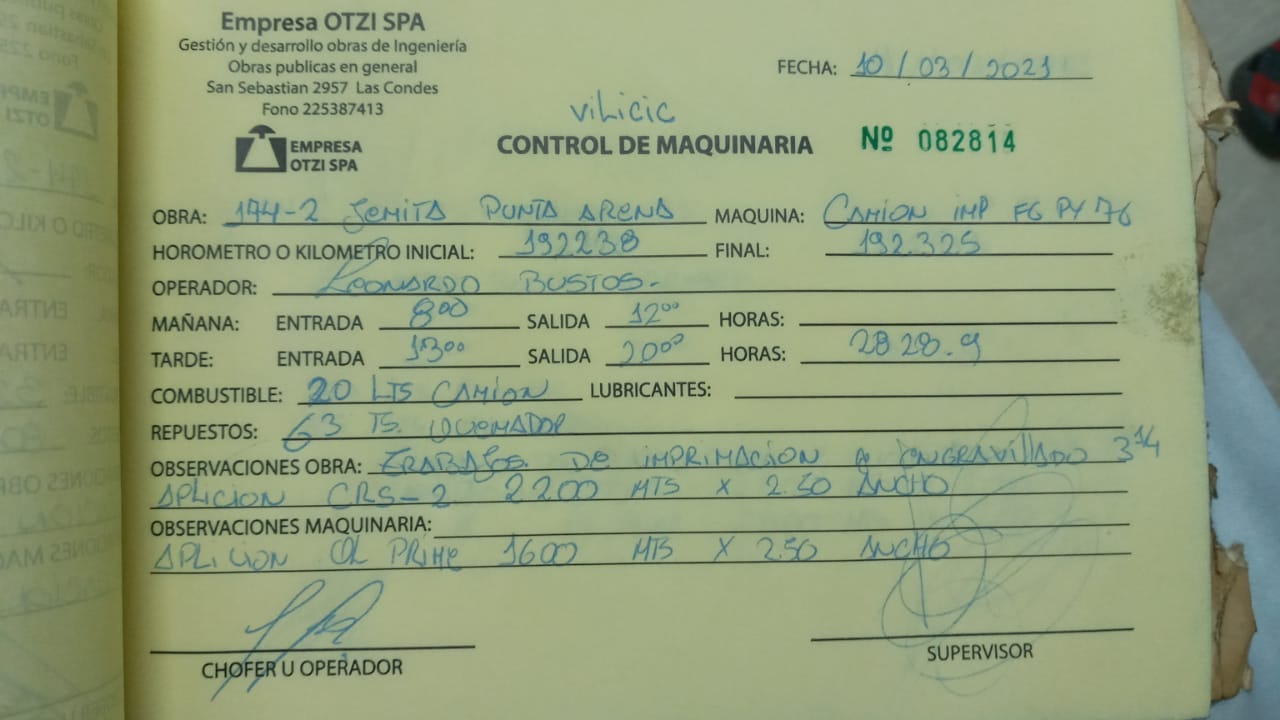 Empresa OTZI SPA
Gestión y desarrollo obras de Ingeniería
Obras publicas en general
San Sebastian 2957 Las Condes
Fono 225387413
EMPRESA
OTZI SPA
FECHA: 10/03/2021
VILICIC
CONTROL DE MAQUINARIA Nº 082814
OBRA: 174-2 SEMITA PUNTA ARENA MAQUINA: CAMION IMP FG PY 76
HOROMETRO O KILOMETRO INICIAL: 192238 FINAL: 192.325
OPERADOR: LEONARDO BUSTOS.-
MAÑANA: ENTRADA 8°° SALIDA 12°° HORAS:
TARDE: ENTRADA 13°° SALIDA 20°° HORAS: 2828.9
COMBUSTIBLE: 20 LTS CAMION LUBRICANTES:
REPUESTOS: 63 TS. QUEMADOR
OBSERVACIONES OBRA: TRABAJOS DE IMPRIMACION ENGRAVILLADO 3/4
APLICION CRS-2 2200 MTS X 2.50 ANCHO
OBSERVACIONES MAQUINARIA:
APLICION QL PRIME 1600 MTS X 2.50 ANCHO
CHOFER U OPERADOR
SUPERVISOR